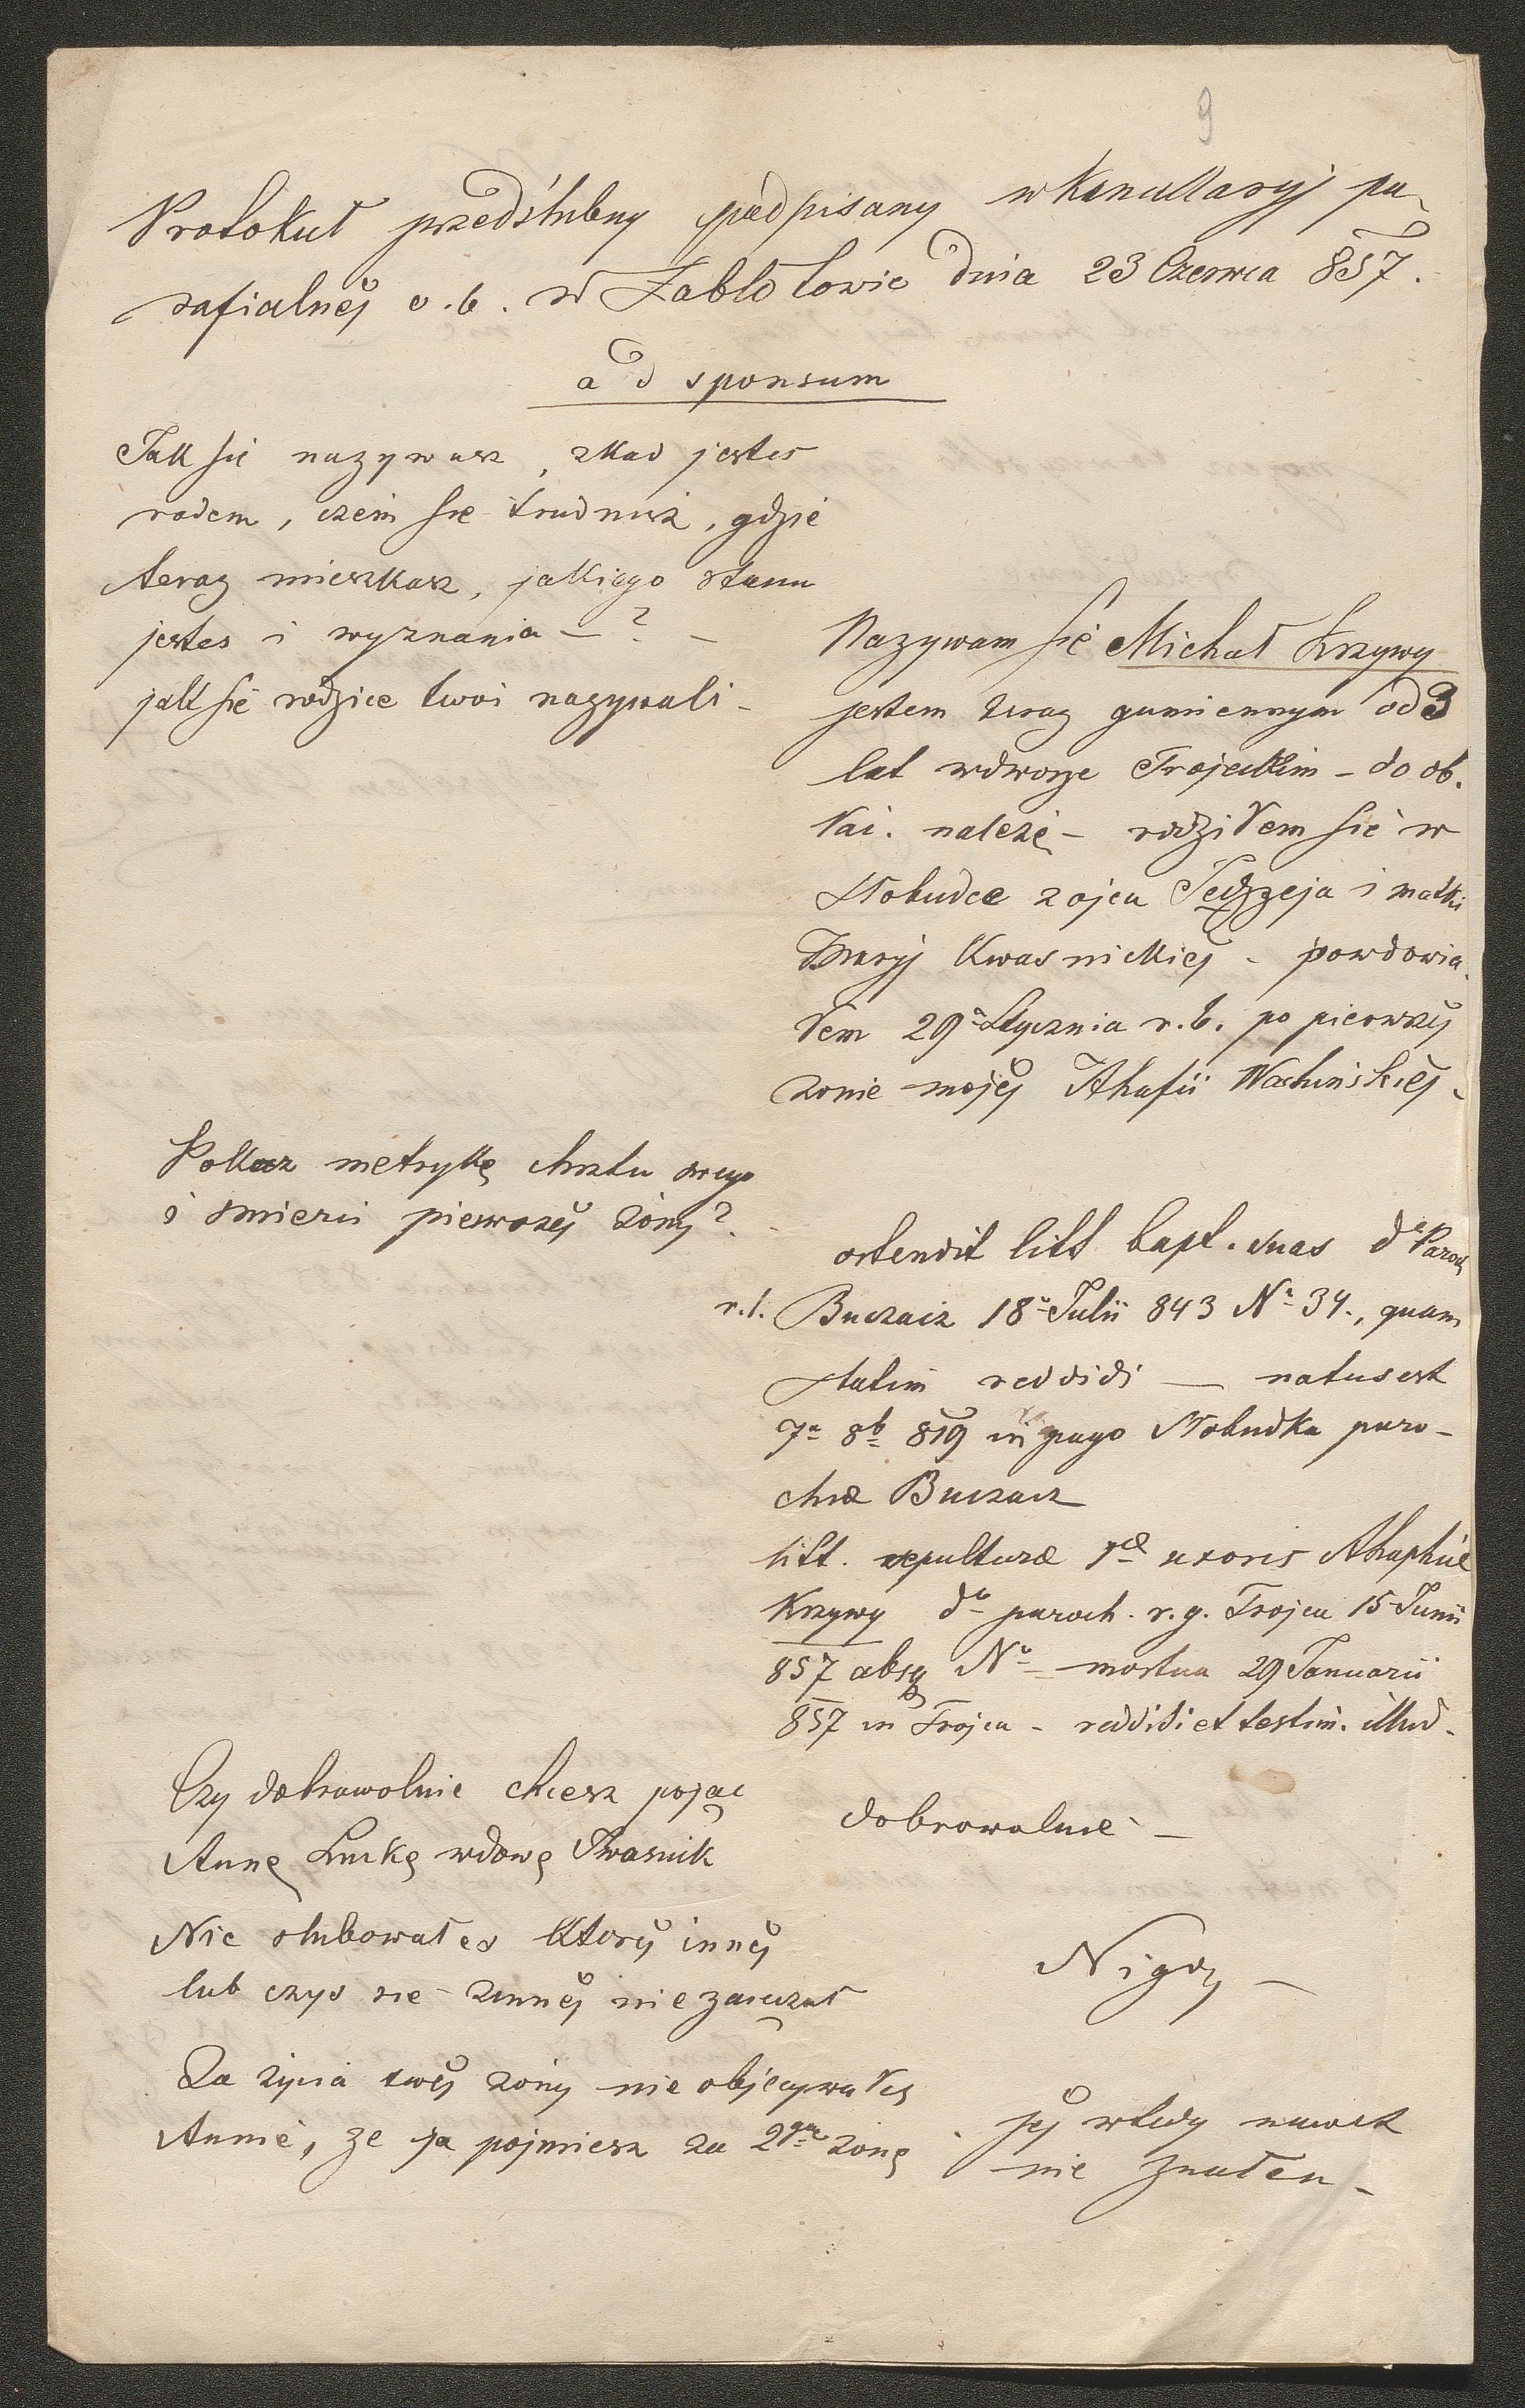 9
Protokuł przedślubny podpisany w Kancellaryj pa-
rafialnéj o. ł. w Zabłotowie dnia 23 Czerwca 857.
ad sponsum
Jak się nazywasz, zkad jestes
rodem, czem się trudnisz, gdzie
teraz mieszkasz, jakiego stanu
jestes i wyznania – ? –
jak się rodzice twoi nazywali –
Nazywam się Michał Krzywy
jestem teraz gumiennym od 3
lat wdworze Trojeckim – do ob.
łać. należę – rodziłem się w
Słobudce z ojca Jędrzeja i matki
Maryj Kwasnickiej – powdowia-
łem 29º Stycznia r. b. po pierwszéj
zonie mojéj Ahafii
Pokaz metrykę chrztu swego
i smierci pierwszéj żóny?
ostendit litt. bapt. suas dº Paroch
r. l. Buczacz 18º Julii 843 Nº 34., quam
statim reddidi — natus est
7ª 8b 819 in pago Słobudka paro-
chiæ Buczacz
litt. sepulturæ 1æ uxoris Ahaphiæ
Krzywy dº paroch. r. g. Trojca 15 Junii
857 absq Nº – mortua 29 Januarii
857 in Trojca – reddidi et testim. illud –
Czy dobrowolnie chcesz pojąc
Annę Łuckę wdowę Kwasnik
dobrowolnie –
Nie slubowałes któréj innéj
lub czys sie z innéj nie zaręczał
Nigdy –
Za życia twéj zóny nie objecywałes
Annie, ze ja pojmiesz za 2gą zonę
. jéj wtedy nawet
nie znałem –